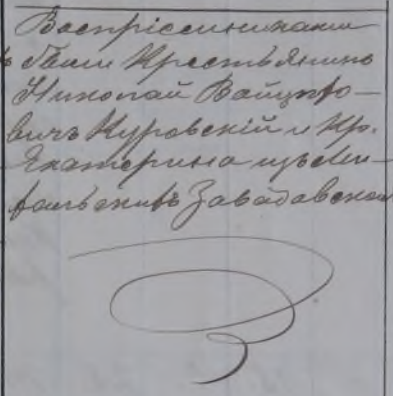 Воспріемниками
были Крестьянинъ
Николай Войцехо-
вичъ Куровскій и Кр.
Екатерина
Завадовская